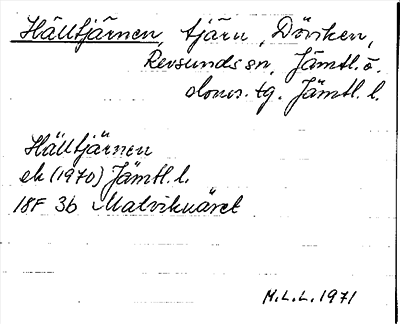 Hälltjärnen, tjärn, Döviken,
Revsunds sn, Jämtl. ö.
doms. tg. Jämtl. l.
Hälltjärnen
ek (1970) Jämtl. l.
18F 3b
M.L.L. 1971